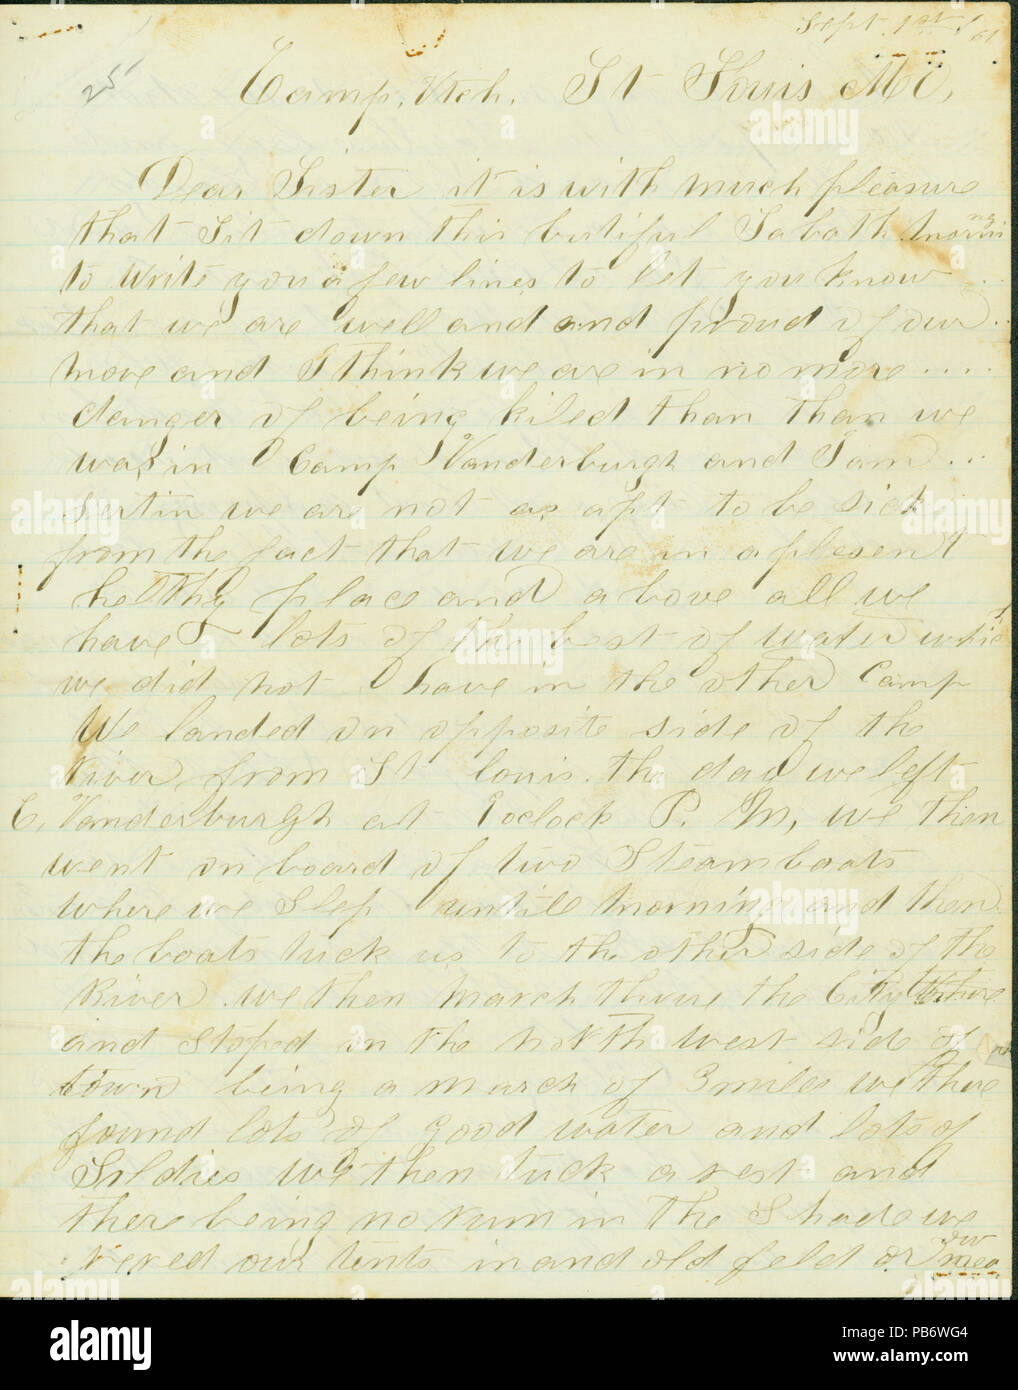 Sept. 1st /61
25
Camp, Utch. St Louis Mo,
Dear Sister it is with much pleasure
that I sit down this butiful Sabath morning
to write you a few lines to let you know
that we are well and and proud of our
move and I think we are in no more
danger of being kiled than than we
was in Camp Vanderburgh and I am
sertin we are not as apt to be sick
from the fact that we are in a plesent
helthy place and above all we
have lots of the best of water which
we did not have in the other Camp
We landed on opposite side of the
River from St louis the day we left
C. Vanderburgh at oclock P. M, we then
went on board of two Steamboats
where we Slep untill morning and then
the boats tuck us to the other side of the
River we then march threw the City
and stoped in the north west side of
town being a march of 3 miles we there
found lots of good water and lots of
Soldies we then tuck a rest and
there being no rum in the Shade we
reved our tents in and old feld or meadow
alamy stock photo
alamy
a
PB6WG4
www.alamy.com